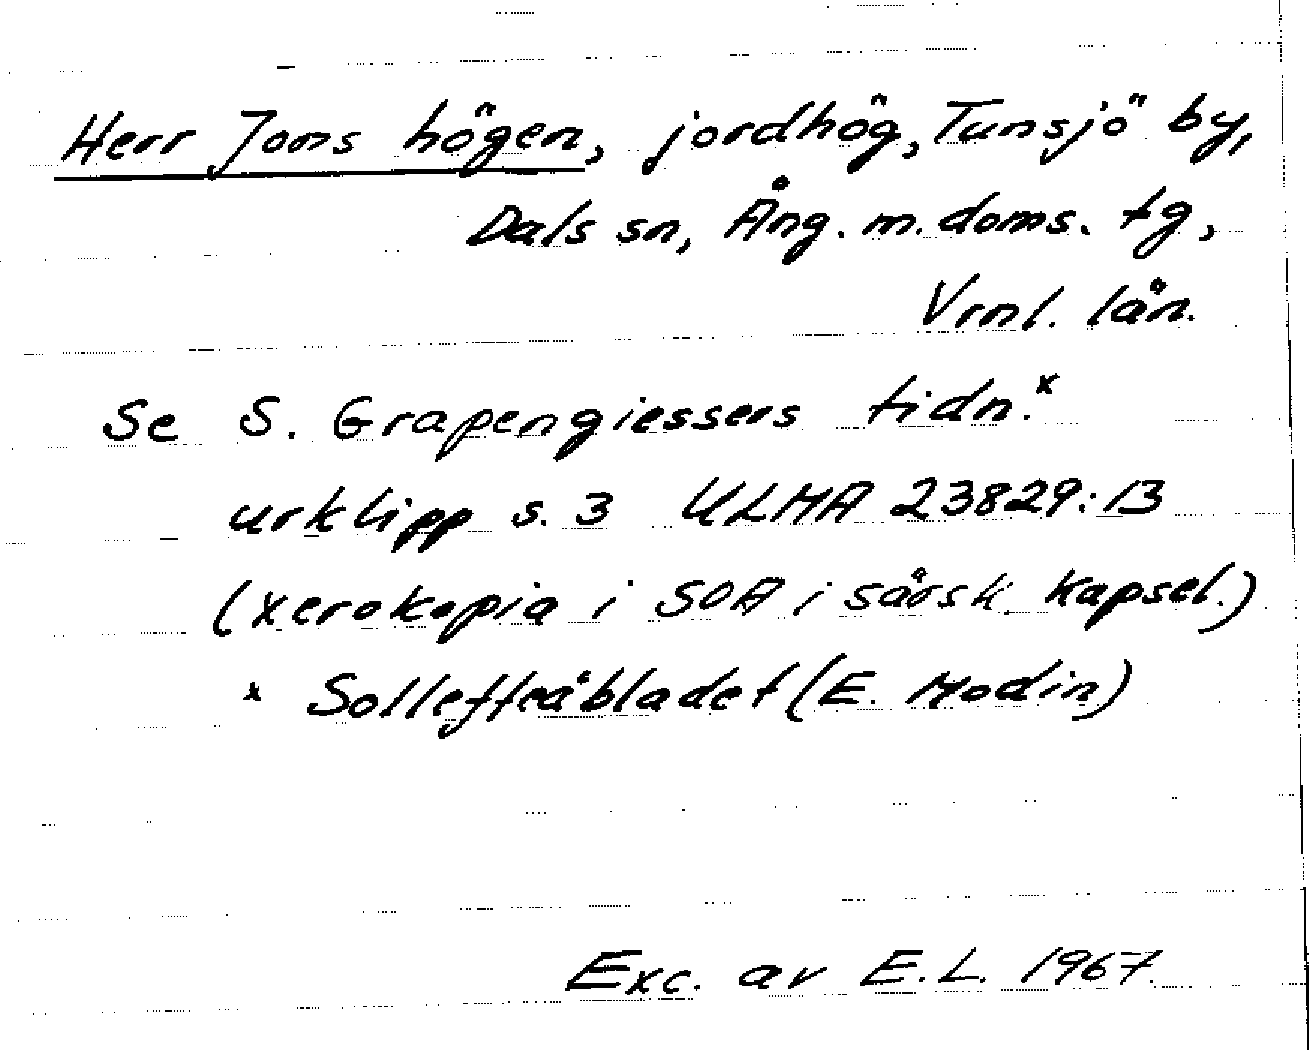 Herr Jons högen, jordhög, Tunsjö by,
Dals sn, Ång. m. doms. tg,
Vrnl. län.
Se S. Grapengiessers tidn.x
urklipp s. 3 ULMA 23829:13
(xerokopia i SOA i särsk. kapsel.)
x Sollefteåbladet (E. Modin)
Exc. av E.L. 1967.